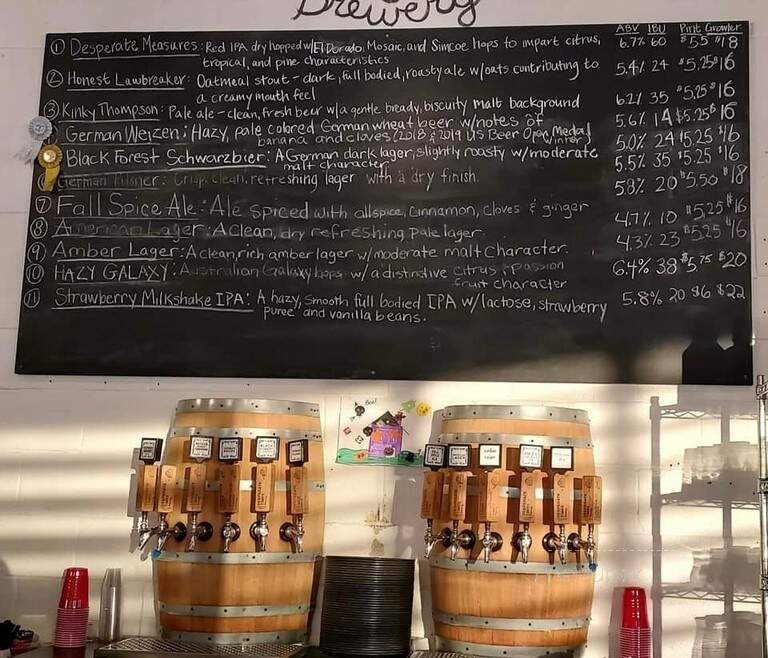 Brewery
ABV IBU Pint Growler
① Desperate Measures: Red IPA dry hopped w/ El Dorado, Mosaic, and Simcoe hops to impart citrus, 6.7% 60 $5.5 $18
tropical, and pine characteristics
② Honest Lawbreaker: Oatmeal stout - dark, full bodied, roasty ale w/oats contributing to 5.4% 24 $5.25 $16
a creamy mouth feel
③ Kinky Thompson: Pale ale - clean, fresh beer w/a gentle, bready, biscuity malt background 6.2% 35 $5.25 $16
German Weizen: Hazy, pale colored German wheat beer w/notes of 5.6% 14 $5.25 $16
banana and cloves (2018 & 2019 US Beer Open Medal Winner)
Black Forest Schwarzbier: A German dark lager, slightly roasty w/moderate 5.0% 24 $5.25 $16
malt character
German Pilsner: Crisp, clean, refreshing lager with a dry finish. 5.5% 35 $5.25 $16
⑦ Fall Spice Ale: Ale spiced with allspice, cinnamon, cloves & ginger 5.8% 20 $5.50 $18
⑧ American Lager: A clean, dry refreshing pale lager. 4.7% 10 $5.25 $16
⑨ Amber Lager: A clean, rich amber lager w/moderate malt character. 4.3% 23 $5.25 $16
⑩ HAZY GALAXY: Australian Galaxy hops w/a distinctive citrus & passion 6.4% 38 $5.75 $20
fruit character
⑪ Strawberry Milkshake IPA: A hazy, smooth full bodied IPA w/lactose, strawberry 5.8% 20 $6 $22
puree and vanilla beans.
Boo!